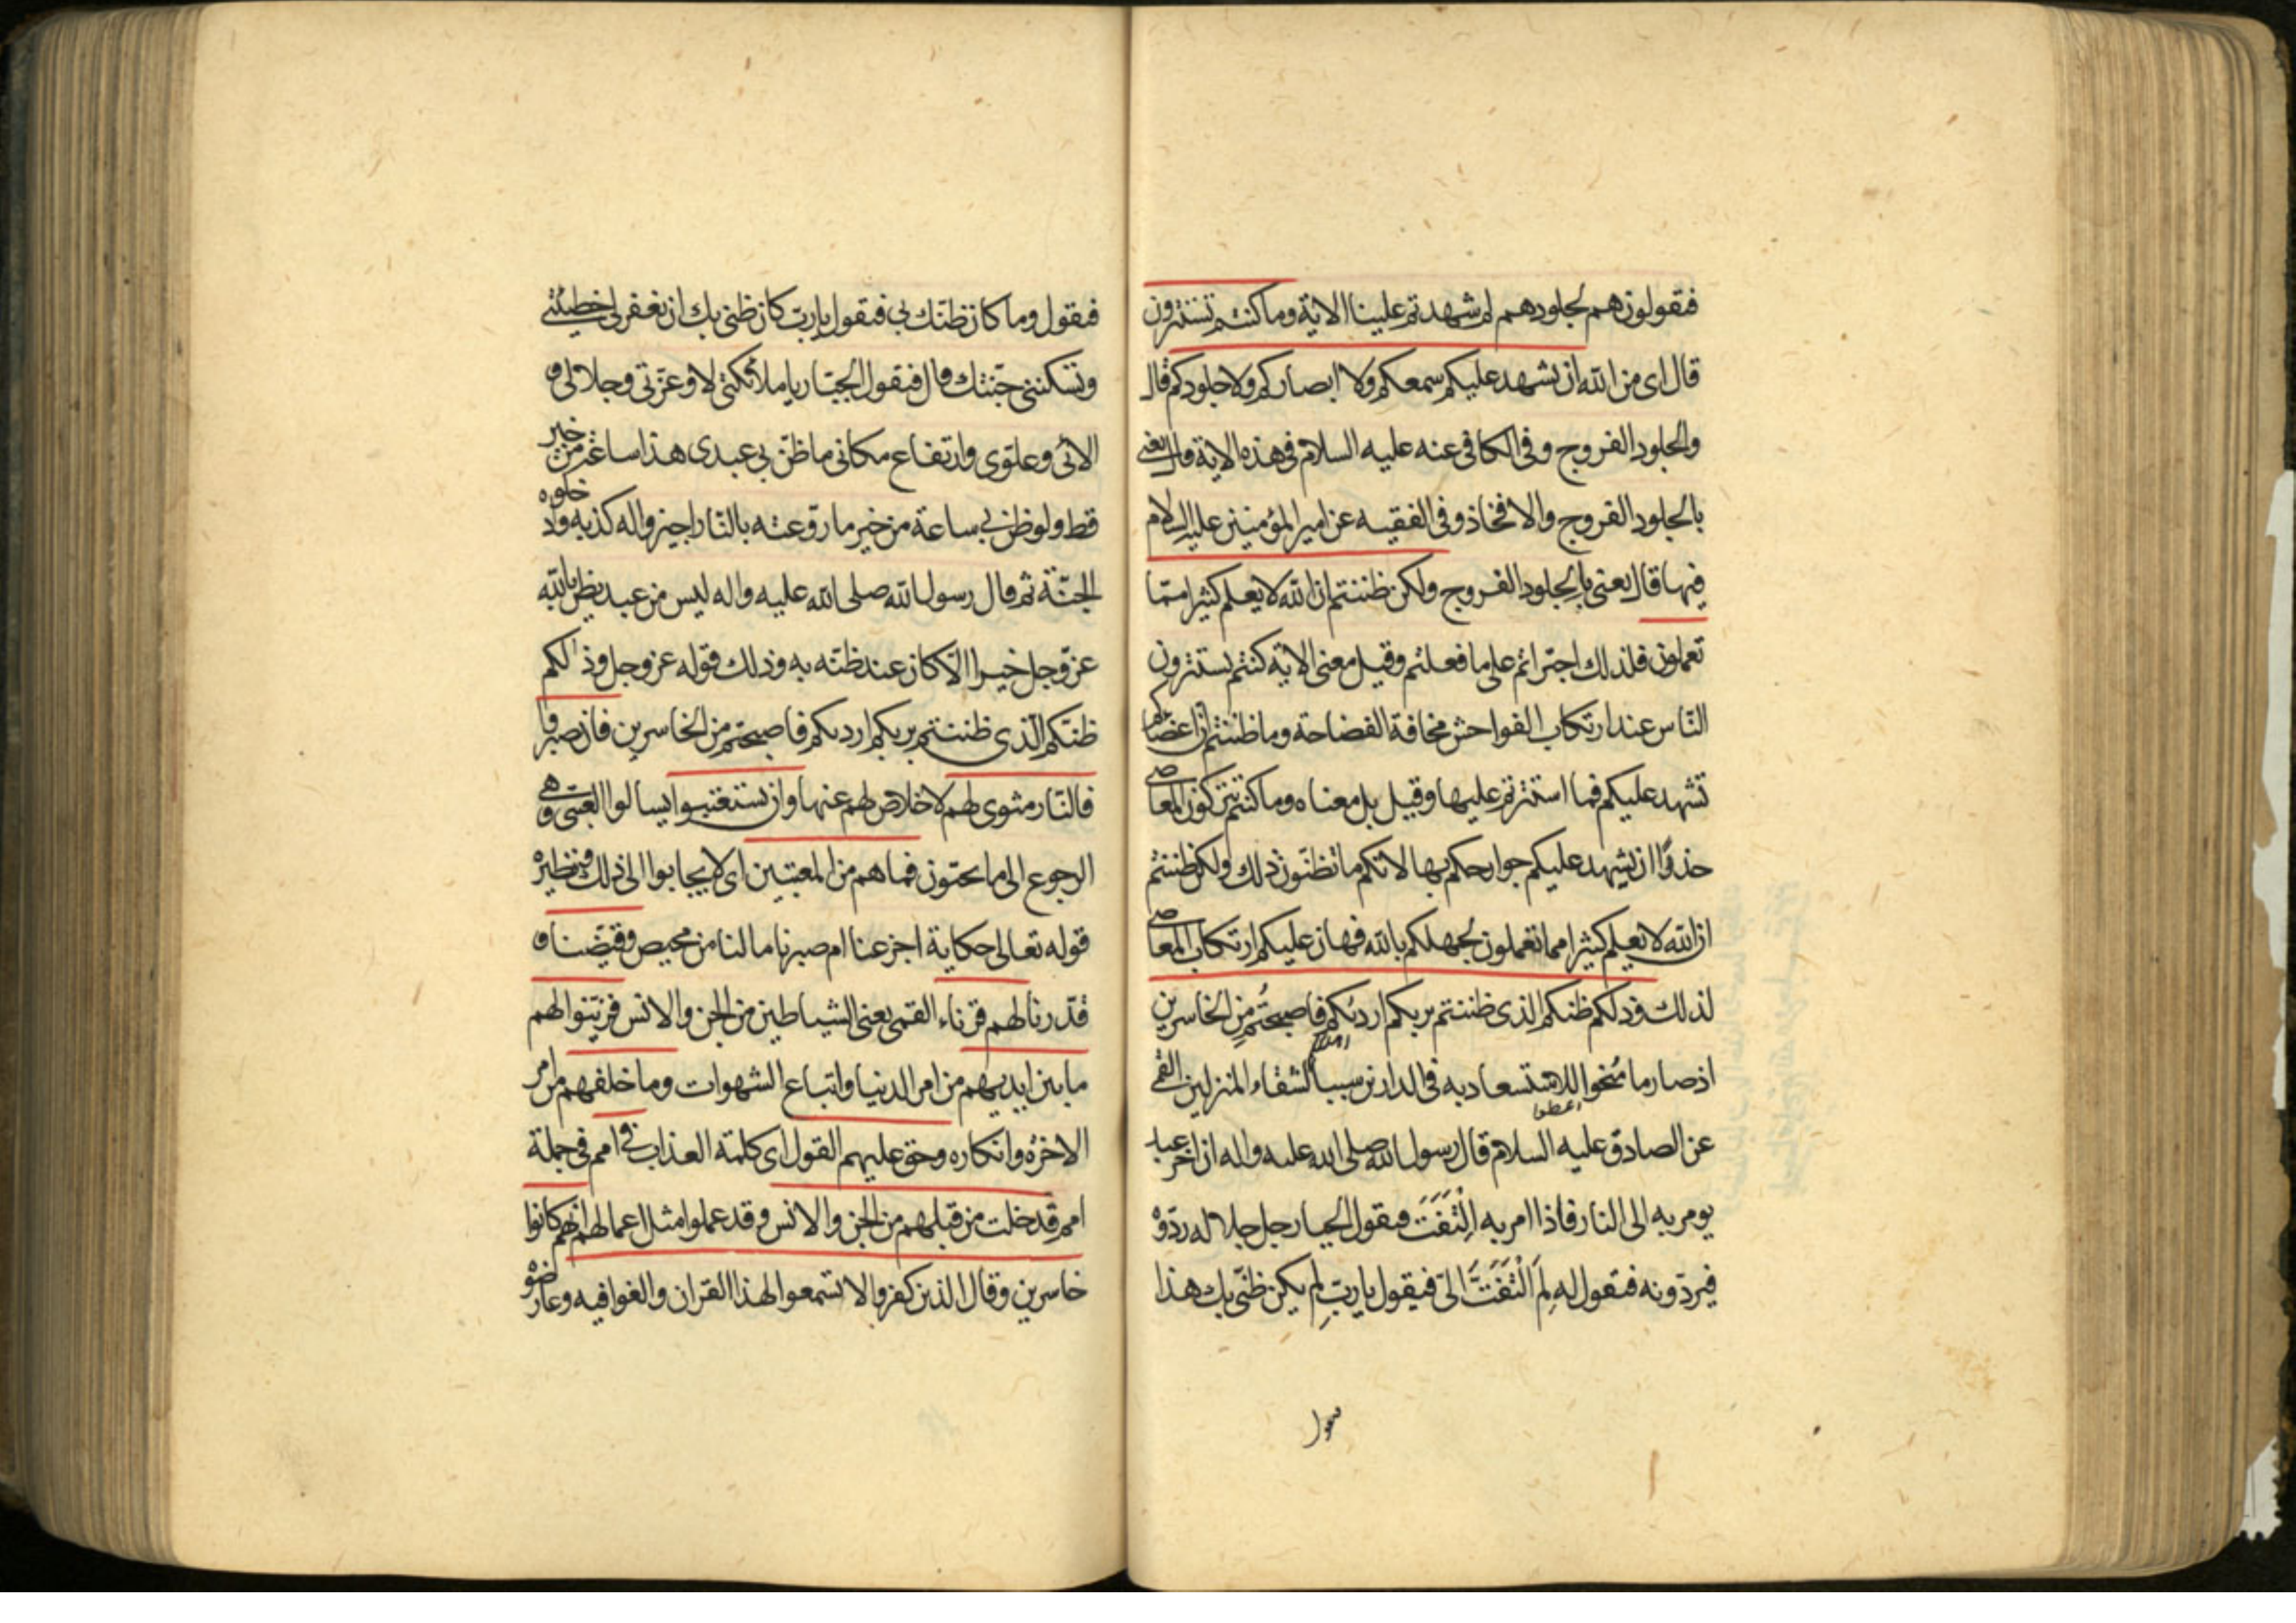 فيقولون هم لجلودهم لم شهدتم علينا الاية وما كنتم تستترون
قال اى من الله ان يشهد عليكم سمعكم ولا ابصاركم ولا جلودكم قال
والجلود الفروج وفى الكافى عنه عليه السلام فى هذه الاية قال يعنى
بالجلود الفروج والافخاذ وفى الفقيه عن امير المؤمنين عليه السلام
فيها قال يعنى بالجلود الفروج ولكن ظننتم ان الله لا يعلم كثيرا ممّا
تعملون فلذلك اجتراتم على ما فعلتم وقيل معنى الاية كنتم تستترون
النّاس عند ارتكاب الفواحش مخافة الفضاحة وما ظننتم ان اعضاءكم
تشهد عليكم فما استترتم عليها وقيل بل معناه وما كنتم تتركون المعاصى
حذرًا ان يشهد عليكم جوارحكم بها لانّكم ما تظنّون ذلك ولكن ظننتم
ان الله لا يعلم كثيرا مما تعملون لجهلكم بالله فهان عليكم ارتكاب المعاصى
لذلك وذلكم ظنكم الذى ظننتم بربكم ارديٰكم فاصبحتُم مِن الخاسرين
اهلككم
اذ صار ما مُنحوا للاستسعاد به فى الدارين سببا لشقاء المنزلين القمى
اعطوا
عن الصادق عليه السلام قال رسول الله صلى الله عليه واله ان اخر عبد
يومر به الى النار فاذا امر به اِلْتَفَتَ فيقول الجبار جل جلاله ردّوْه
فيردّونه فيقول له لِمَ الْتَفَتَّ الىّ فيقول يا ربّ لم يكن ظنّى بك هذا
فيقول وما كان ظنّك بى فيقول يا ربّ كان ظنى بك ان تغفر لى خطيئتى
وتسكننى جنّتك قال فيقول الجبّار يا ملائكتى لا وعزّتى وجلالى و
الائى وعلوّى وارتفاع مكانى ما ظنّ بى عبدى هذا ساعة من خير
قط ولو ظن بى ساعة من خير ما روّعته بالنّار اجيزوا له كذبه وادخلوه
الجنّة ثم قال رسول الله صلى الله عليه واله ليس من عبد يظن بالله
عزّ وجل خيرا الّا كان عند ظنّه به وذلك قوله عز وجل وذٰلكم
ظنّكم الّذى ظننتم بربكم ارديكم فاصبحتم من الخاسرين فان يصبروا
فالنّار مثوى لهم لا خلاص لهم عنها وان يستعتبوا يسالوا العتبى وهى
الرجوع الى ما يحبّون فما هم من المعتبين اى لا يجابوا الى ذلك ونظيره
قوله تعالى حكاية اجزعنا ام صبرنا ما لنا من محيص وقيّضنا و
قدّرنا لهم قرناء القمى يعنى الشياطين من الجن والانس فزيّنوا لهم
ما بين ايديهم من امر الدنيا واتباع الشهوات وما خلفهم من امر
الاخرة وانكاره وحق عليهم القول اى كلمة العذاب فى امم فى جملة
امم قد خلت من قبلهم من الجن والانس وقد عملوا مثل اعمالهم انّهم كانوا
خاسرين وقال الذين كفروا لا تسمعوا لهذا القران والغوا فيه وعارضوه